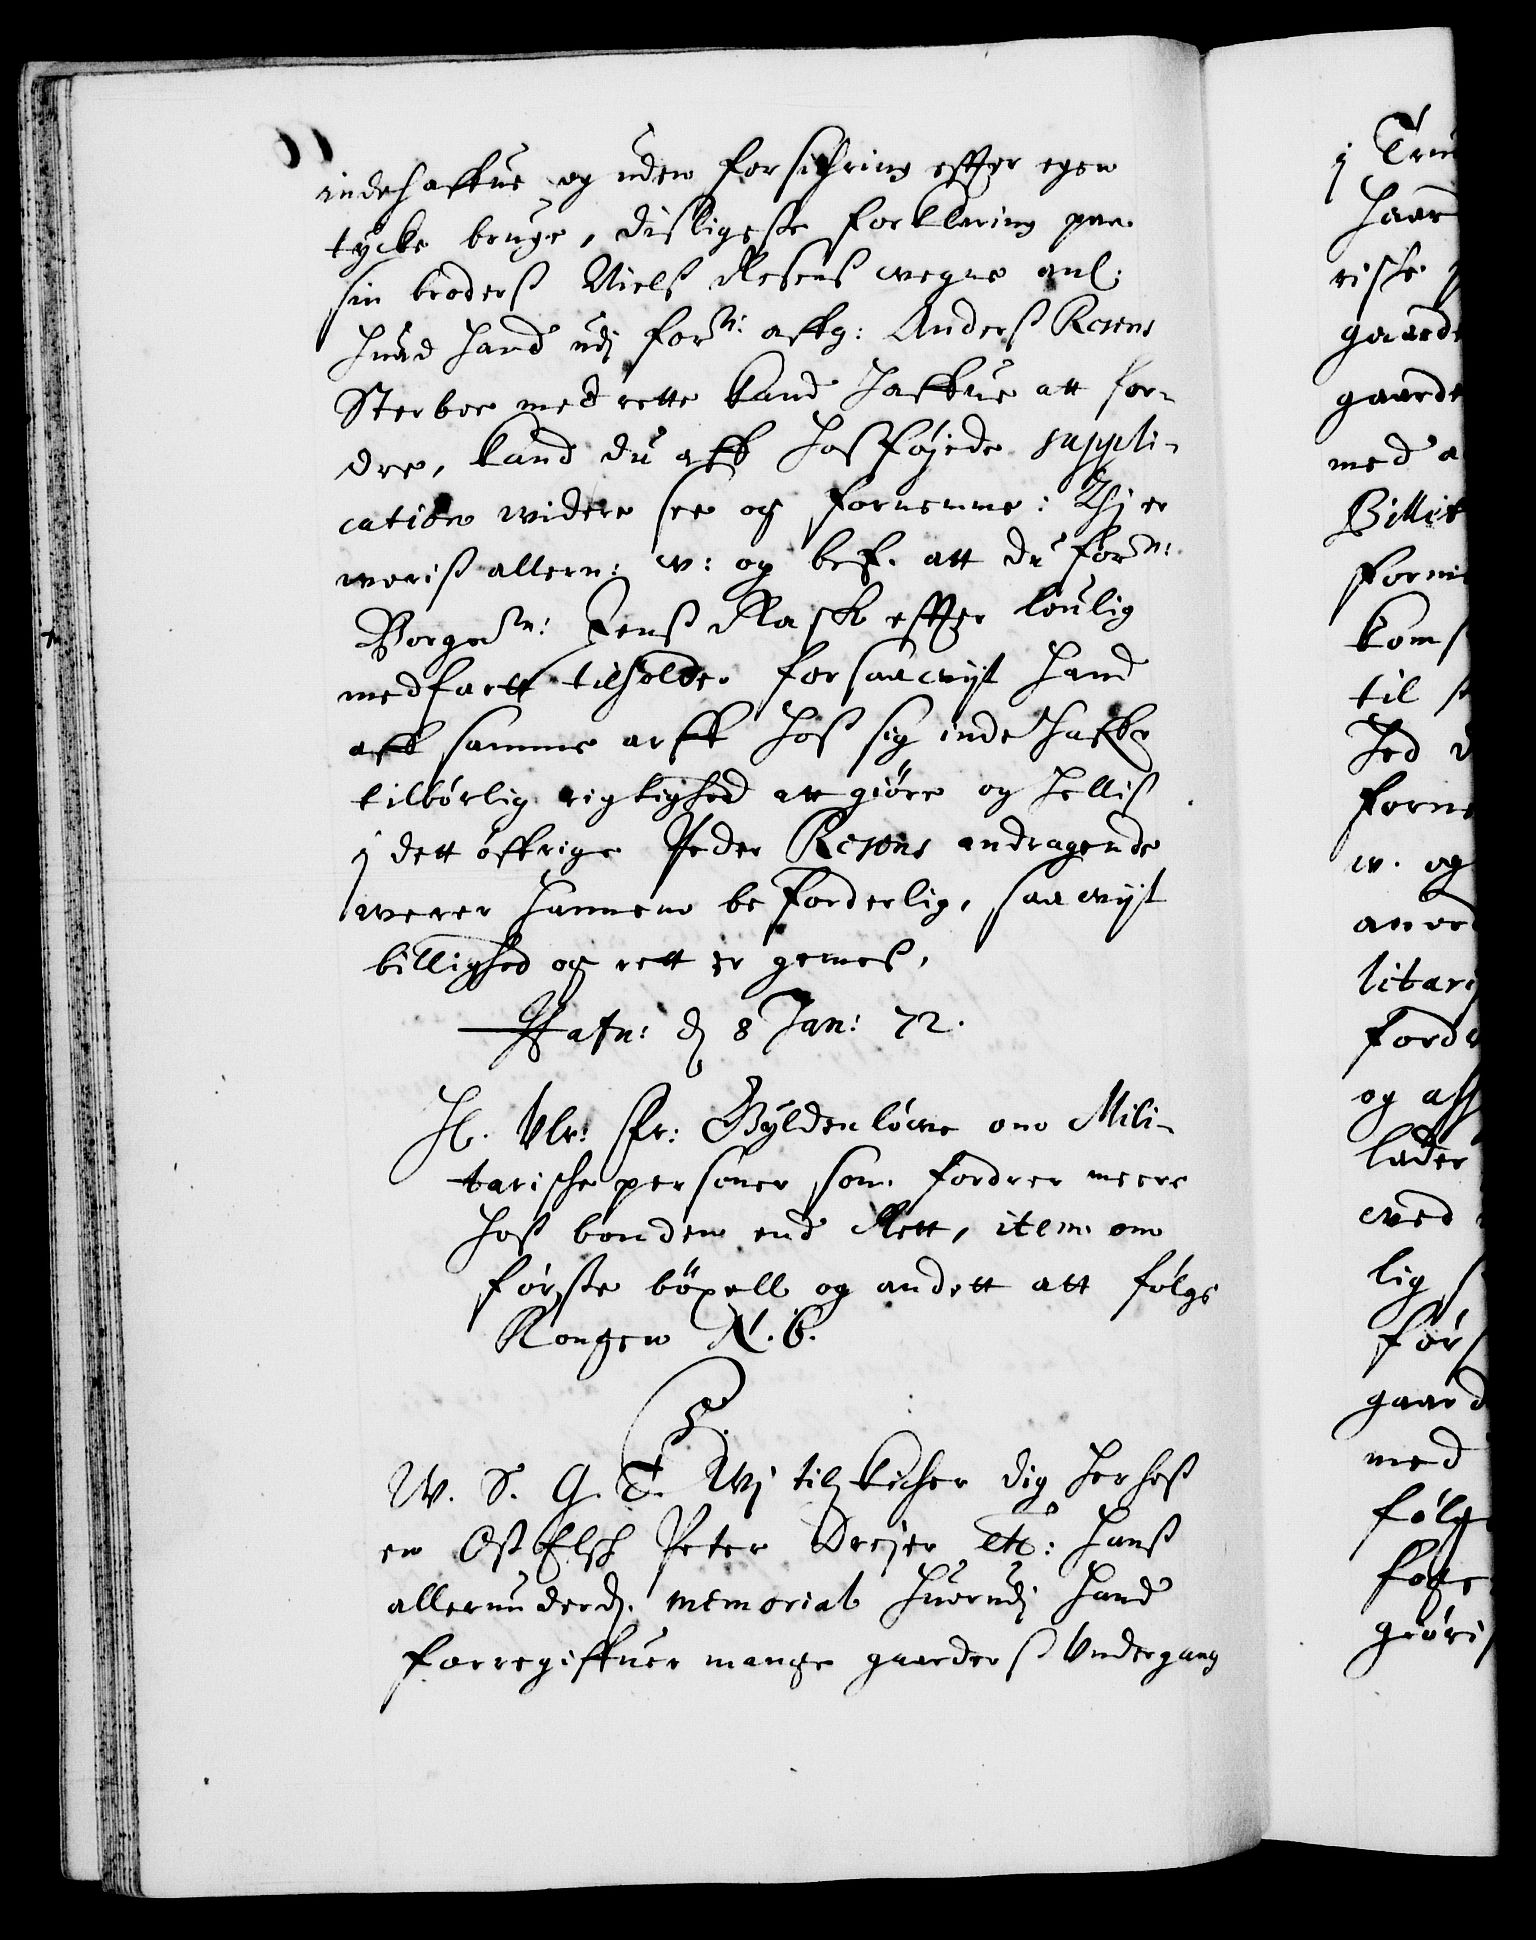 indehaffue og uden forsichring effter egen
tycke bruge, disligeste forklaring paa
sin broders Niels Resens wegne anl:
huad hand udj forn: affg: Anders Resens
Sterboe med rette kand haffue att for-
dre, kand du aff hosføjede suppli-
cation widere see og fornemme: Thj er
woris allern: w: og bef. att du forn:
Borgem: Jens Rask effter louglig
medfartt tilholder forsaawijt hand
aff samme arff hos sig inde haffr
tilbørlig rigtighed att giöre og hellis
j dett öffrige Peder Resens andragende
werer hannem beforderlig, saawijt
billighed og rett er gemes,
Hafn: dj 8 Jan: 72.
H. Vlr: Fr: Gyldenlöwe om Mili-
tarische personer som fordrer meere
hos bonden end Rett, item om
förste böxell og andett att fölge
Kongen N. B.
W. S. G. T. Wj tilskicher dig herhos
en Peter Dreyer etc: hans
allerunderd. memorial huorudj hand
forregiffuer mange gaarders Undergang
j Tru
haar
rische
gaarde
gaarde
med a
Billit
forni
koms
til
hed
forne
w. og
anord
litari
fordr
og aff
lader
wed
lig
förs
gaard
med
fölge
foge
giöris